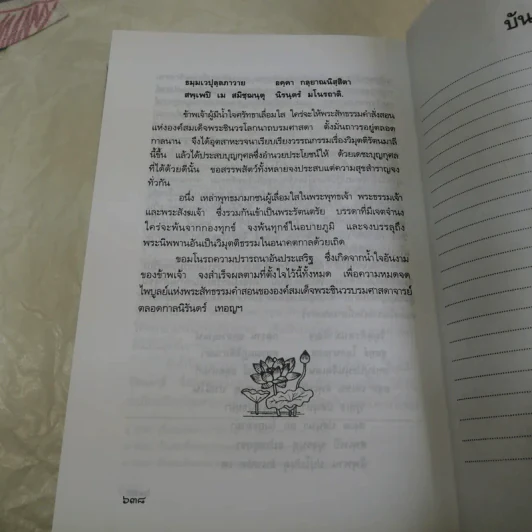 ธมฺมเวปุลฺลภาวาย อคฺคา กลฺยาณนิสฺสิตา
สพฺเพปิ เม สมิชฺฌนฺตุ นิรนฺตรํ มโนรถาติ.
ข้าพเจ้าผู้มีน้ำใจศรัทธาเลื่อมใส ใคร่จะให้พระสัทธรรมคำสั่งสอน
แห่งองค์สมเด็จพระชินวรโลกนาถบรมศาสดา ตั้งมั่นถาวรอยู่ตลอด
กาลนาน จึงได้อุตสาหะรจนาเรียบเรียงวรรณกรรมเรื่องวิมุตติรัตนมาลี
นี้ขึ้น แล้วได้ประสบบุญกุศลซึ่งอำนวยประโยชน์ให้ ด้วยเดชะบุญกุศล
ที่ได้ด้วยดีนั้น ขอสรรพสัตว์ทั้งหลายจงประสบแต่ความสุขสำราญจง
ทั่วกัน
อนึ่ง เหล่าพุทธมามกชนผู้เลื่อมใสในพระพุทธเจ้า พระธรรมเจ้า
และพระสังฆเจ้า ซึ่งรวมกันเข้าเป็นพระรัตนตรัย บรรดาที่มีเจตจำนง
ใคร่จะพ้นจากกองทุกข์ จงพ้นทุกข์ในอบายภูมิ และจงบรรลุถึง
พระนิพพานอันเป็นวิมุตติธรรมในอนาคตกาลด้วยเถิด
ขอมโนรถความปรารถนาอันประเสริฐ ซึ่งเกิดจากน้ำใจอันงาม
ของข้าพเจ้า จงสำเร็จผลตามที่ตั้งใจไว้นี้ทั้งหมด เพื่อความหมดจด
ไพบูลย์แห่งพระสัทธรรมคำสอนขององค์สมเด็จพระชินวรบรมศาสดาจารย์
ตลอดกาลนิรันดร์ เทอญฯ
๖๓๘
บัน